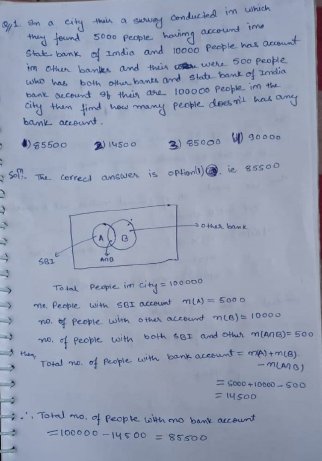 Q.1 In a city their a survey conducted in which
they found 5000 People having account into
State bank of India and 10000 People has account
in Other banks and their were 500 people
who has both other banks and State bank of India
bank account If their are 100000 People in the
city then find how many People doesn't has any
bank account.
1) 85500 2) 14500 3) 85000 4) 90000
Solⁿ. The correct answer is option(1) ie 85500
A B
other bank
SBI
A∩B
Total People in city = 100000
no. People with SBI account n(A) = 5000
no. of People with other account n(B) = 10000
no. of People with both SBI and other n(A∩B) = 500
then,
Total no. of People with bank account = n(A)+n(B)
-n(A∩B)
= 5000+10000-500
= 14500
∴ Total no. of People with no bank account
= 100000 - 14500 = 85500